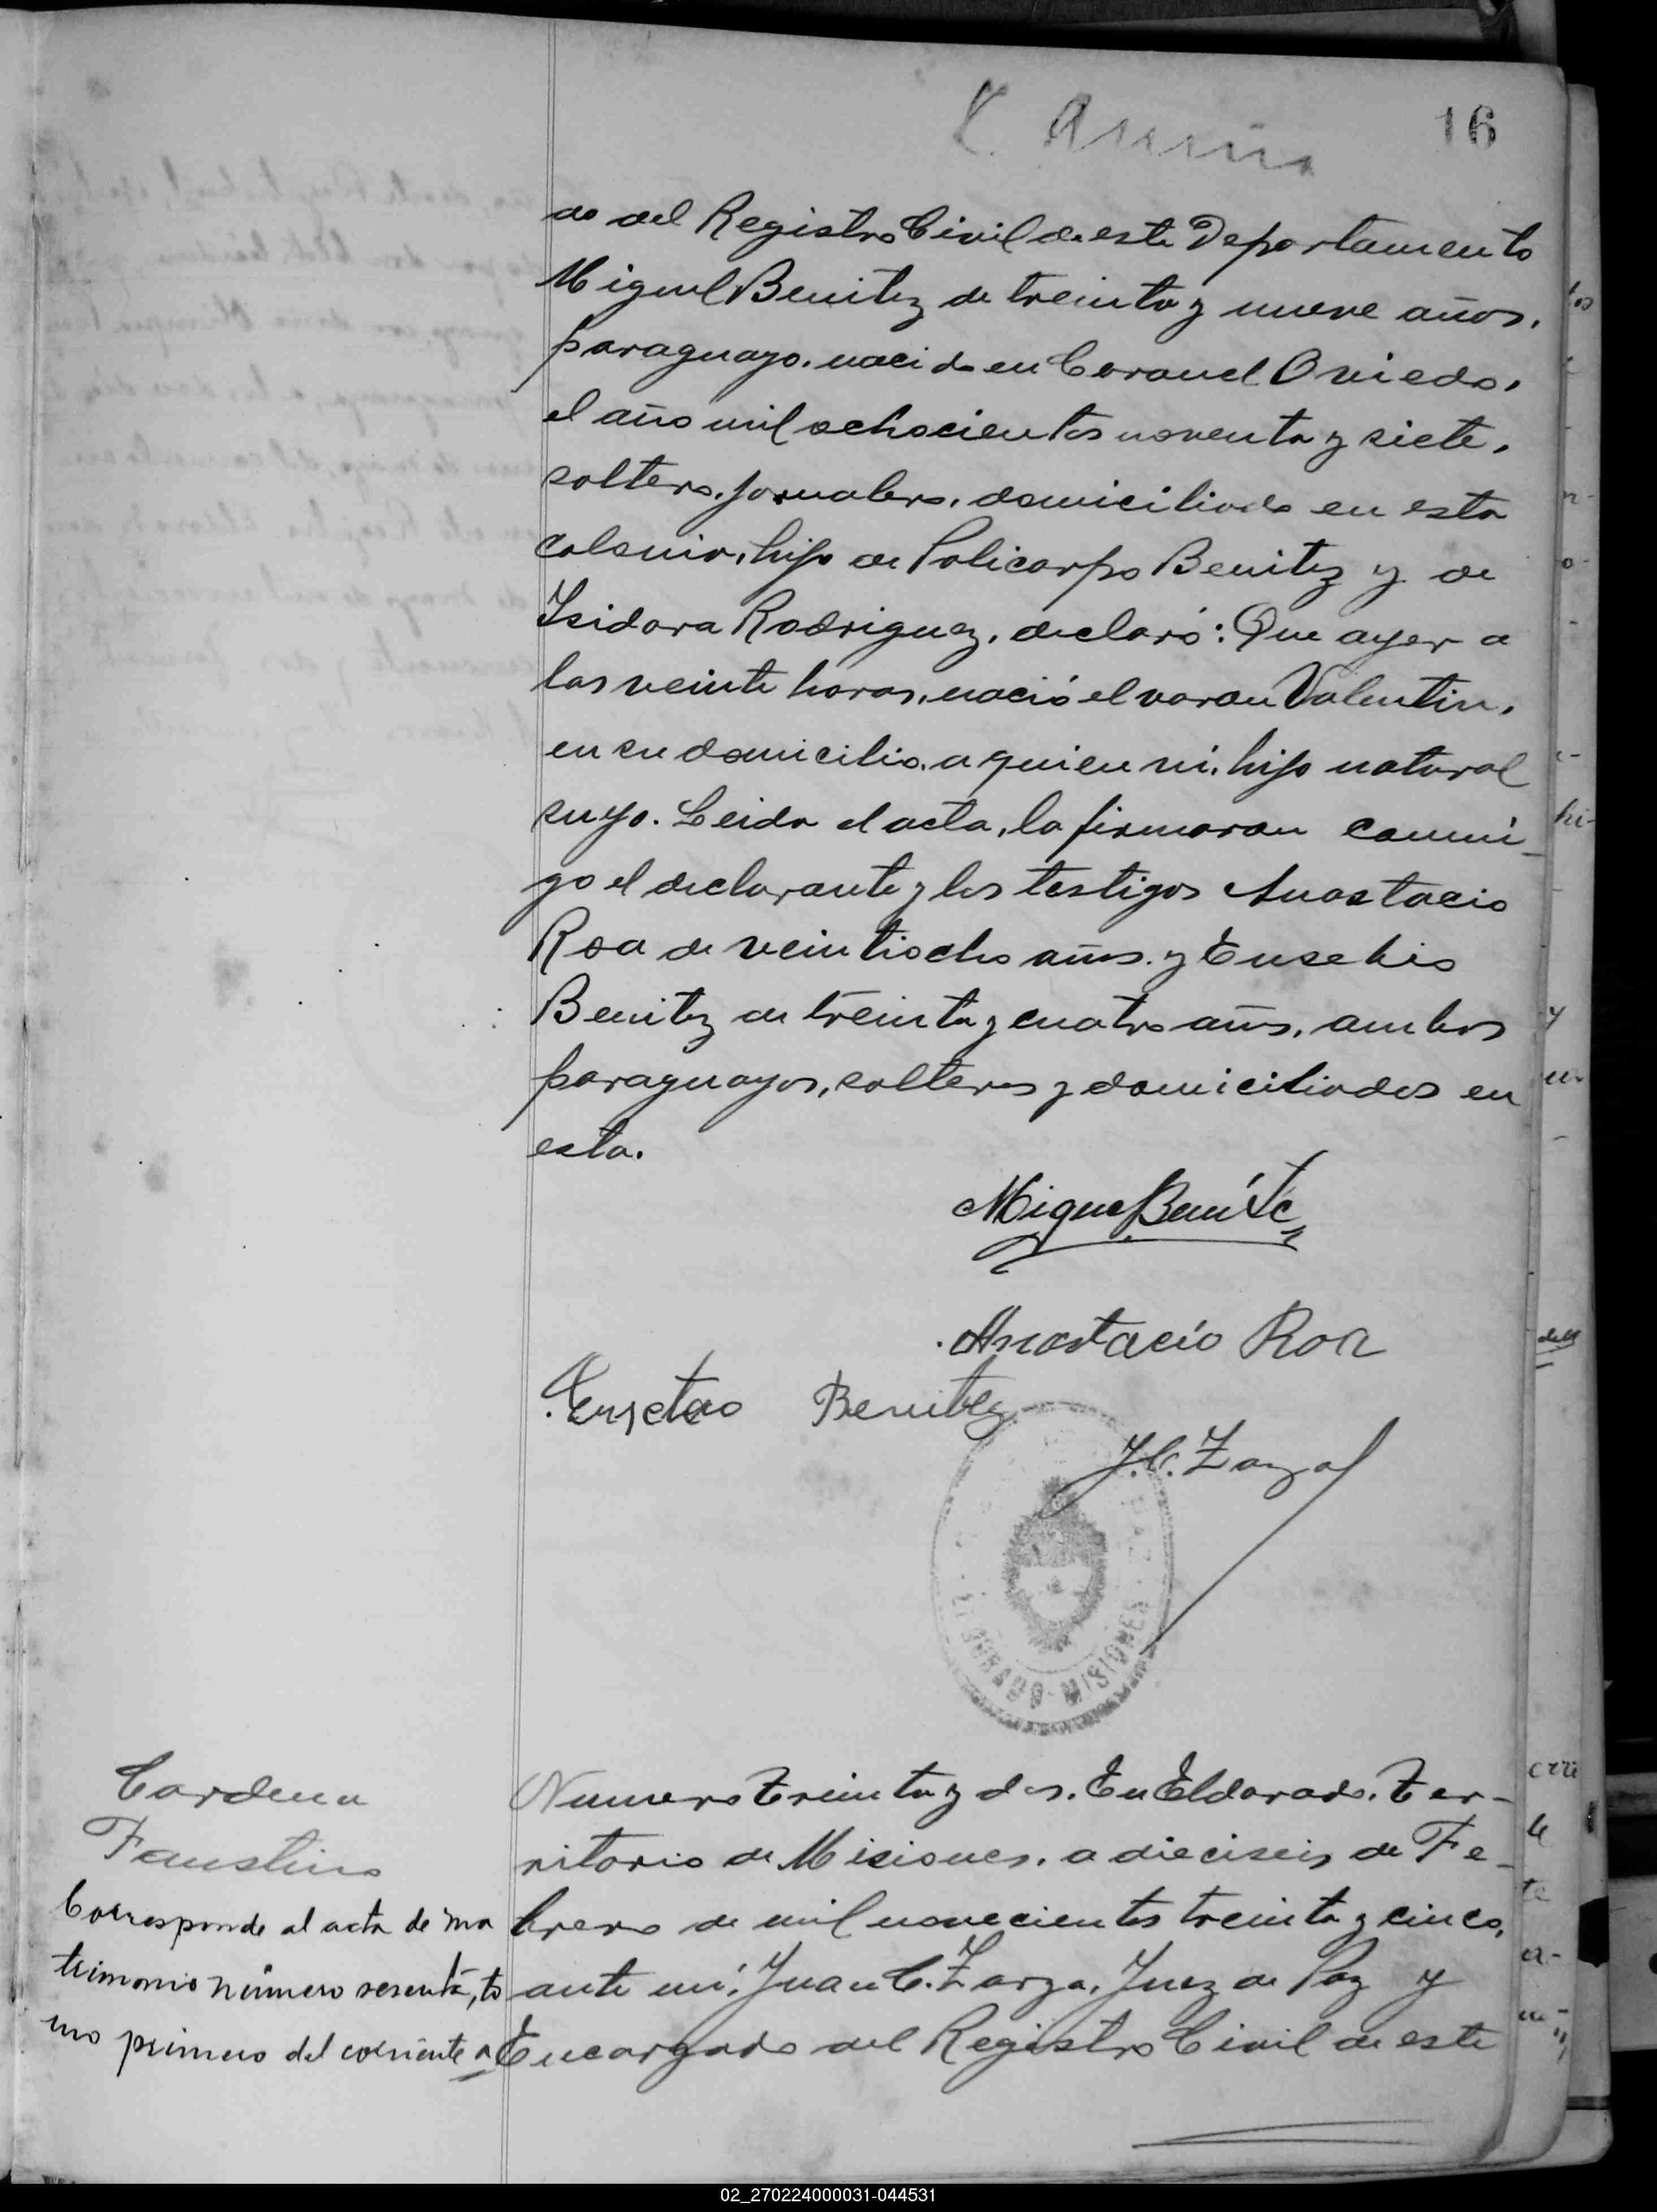 16
do del Registro Civil de este Departamento
Miguel Benitez de treinta y nueve años,
paraguayo, nacido en Coronel Oviedo,
el año mil ochocientos noventa y siete,
soltero, jornalero, domiciliado en esta
colonia, hijo de Policarpo Benitez y de
Isidora Rodriguez, declaró: Que ayer a
las veinte horas, nació el varon Valentin,
en su domicilio, a quien ví, hijo natural
suyo. Leida el acta, la firmaron conmi-
go el declarante y los testigos Anastacio
Roa de veintiocho años y Eusebio
Benitez de treinta y cuatro años, ambos
paraguayos, solteros y domiciliados en
esta.
Migue Benítez
Anastacio Roa
Benitez
J. C. Zarza
ELDORADO - MISIONES
Cardena
Faustino
Corresponde al acta de ma
trimonio número sesenta, to
mo primero del corriente a
Numero treinta y dos. En Eldorado, Ter-
ritorio de Misiones, a dieciseis de Fe-
brero de mil novecientos treinta y cinco,
ante mí, Juan C. Zarza, Juez de Paz y
Encargado del Registro Civil de este
02_270224000031-044531